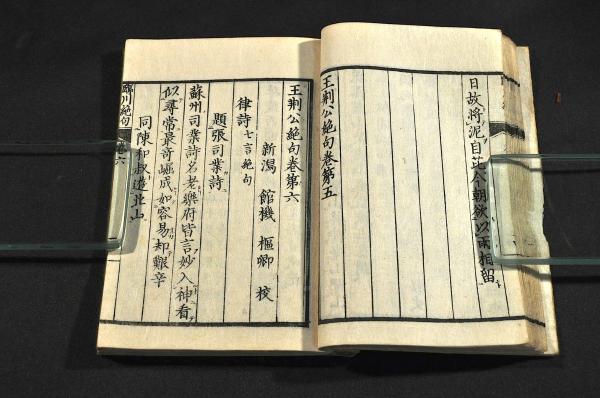 日故將泥自芘今朝欲以雨相留
王荆公絶句卷第五
王荆公絶句卷第六
新潟 館機 樞卿 校
律詩 七言絶句
題張司業詩
蘇州司業詩名老樂府皆言妙入神看
似尋常最奇崛成如容易却艱辛
同陳和叔遊北山
臨川絶句 卷六